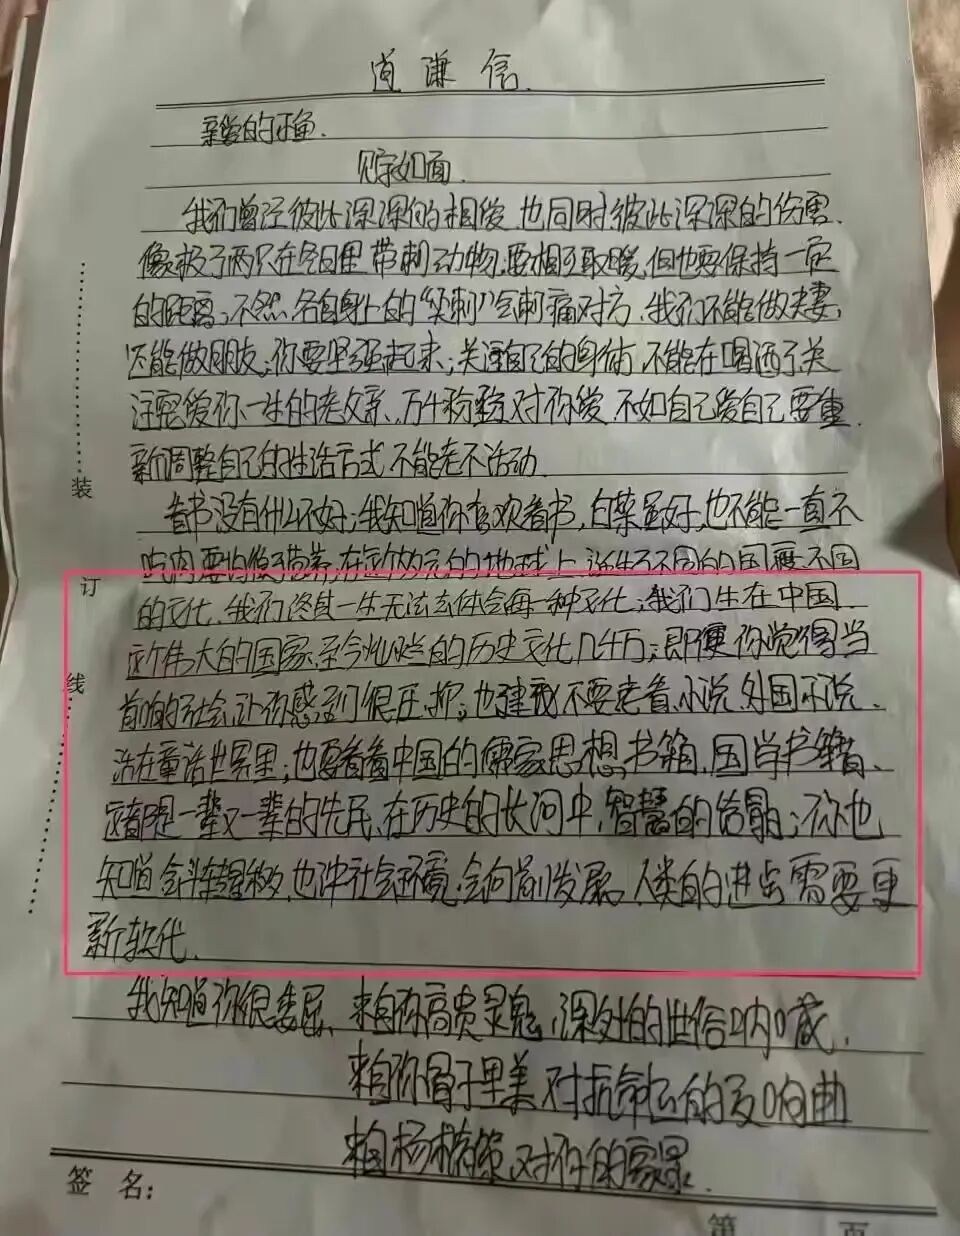 道谦信
亲爱的
见字如面
我们曾经彼此深深的相爱.也同时彼此深深的伤害.
像极了两只在冬日里带刺动物,要相互取暖,但也要保持一定
的距离;不然各自身上的“硬刺”会刺痛对方.我们不能做夫妻,
还能做朋友;你要坚强起来;关注自己的身体,不能在喝酒了关
注疼爱你一生的老父亲.万千粉黛对你爱.不如自己爱自己要重
新调整自己的生活方式.不能老不活动
看书没有什么不好;我知道你喜欢看书,白菜虽好,也不能一直不
吃肉要均衡营养,在这个的地球上诞生了不同的国度不同
的文化.我们终其一生无法去体会每一种文化;我们生在中国.
这个伟大的国家.至今灿烂的历史文化几千万;即便你觉得当
前的社会,让你感到很压抑;也建议不要老看小说.外国小说.
活在童话世界里;也要看看中国的儒家思想书籍.国学书籍.
这都是一辈又一辈的先民,在历史的长河中,智慧的结晶;你也
知道斗转星移,社会环境.会向前发展,人类的进步需要更
新软代.
我知道你很委屈.来自你高贵灵魂,深处的世俗呐喊.
来自你骨子里美对抗命运的交响曲
来自杨对你的
装
订
线
签 名:
第 页